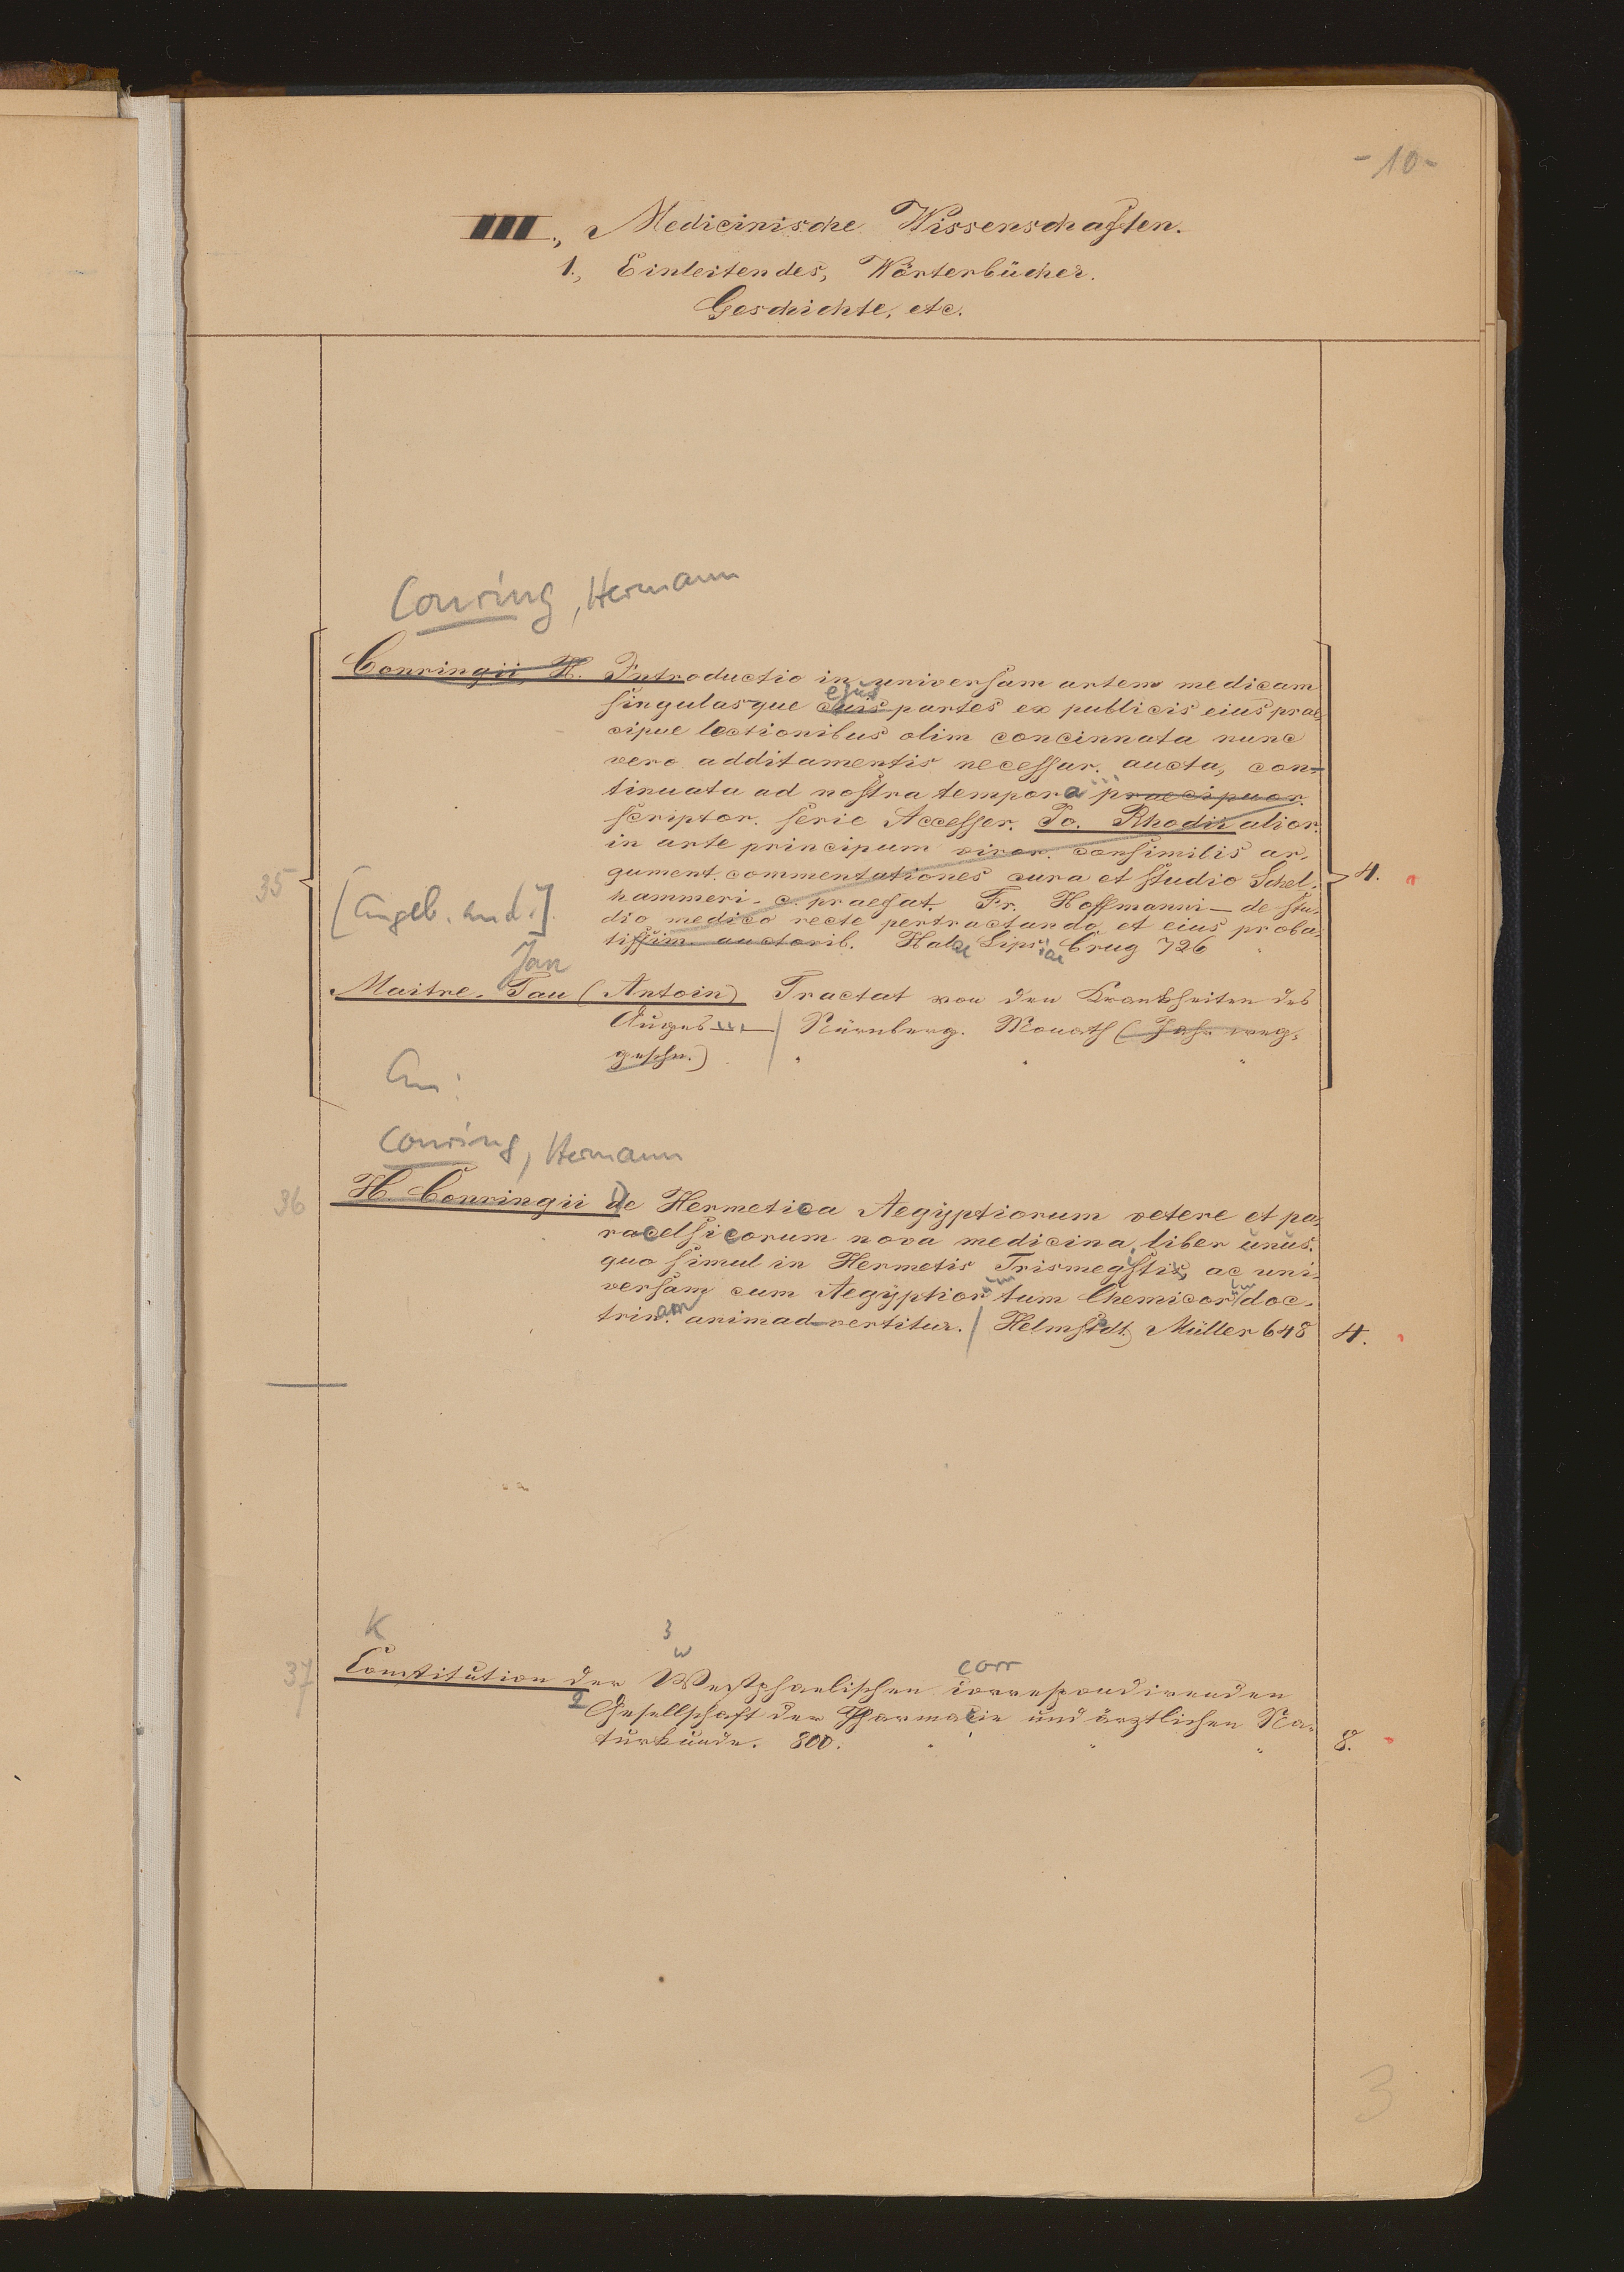 - 10 -
III., Medicinische Wissenschaften.
1., Einleitendes, Wörterbücher.
Geschichte, etc.
Conring, Hermann
Conringii H. Introductio in universam artem medicam
ejus
singulasque suis partes ex publicis eius prae-
cipue lectionibus olim concinnata nunc
vero additamentis necessar. aucta, con-
tinuata ad nostra tempora praecipuor.
scriptor. serie Accesser. Jo. Rhodii alior.
in arte principum viror. consimilis ar-
gument. commentationes cura et studio Schel-
35 hammeri - c. praefat. Fr. Hoffmanni — de stu- 4.
[Angeb. sind:]
dio medico recte pertractando et eius proba-
tissim. auctorib. Halae Lipsiae Crug 726
Jan
Maitre-Jau (Antoin) Tractat von den Krankheiten des
Auges / Nürnberg. Monath (Jah. weg-
geschn.)
An:
Conring, Hermann
36 H. Conringii De Hermetica Aegyptiorum vetere et pa-
racelsicorum nova medicina, liber unus.
quo simul in Hermetis Trismegisti, ac uni-
versam cum Aegyptiorum tum Chemicorum doc-
trinam animad-vertitur. / Helmstdt. Müller 648 4.
K 3
w corr
37 Constitution der Westphaelischen correspondirenden
2 Gesellschaft der Pharmacie und ärztlichen Na-
turkunde. 800. 8.
3